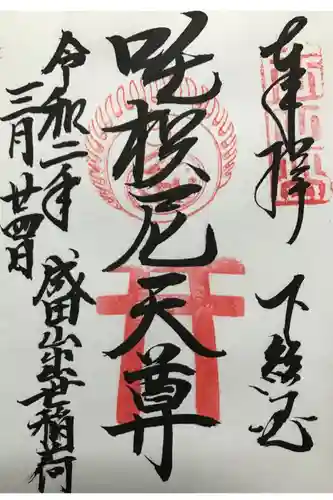 奉拝
下総国
吒枳尼天尊
令和二年
三月廿四日
成田山出世稲荷